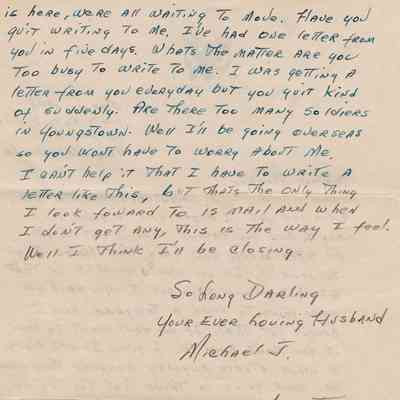 is here, were all waiting to move. Have you
quit writing to me. I've had one letter from
you in five days. Whats the matter are you
too busy to write to me. I was getting a
letter from you everyday but you quit kind
of suddenly. Are there too many soldiers
in Youngstown. Well I'll be going overseas
so you wont have to worry about me.
I can't help it that I have to write a
letter like this, but thats the only thing
I look foward to is mail and when
I don't get any, this is the way I feel.
Well I think I'll be closing.
So Long Darling
Your Ever Loving Husband
Michael J.